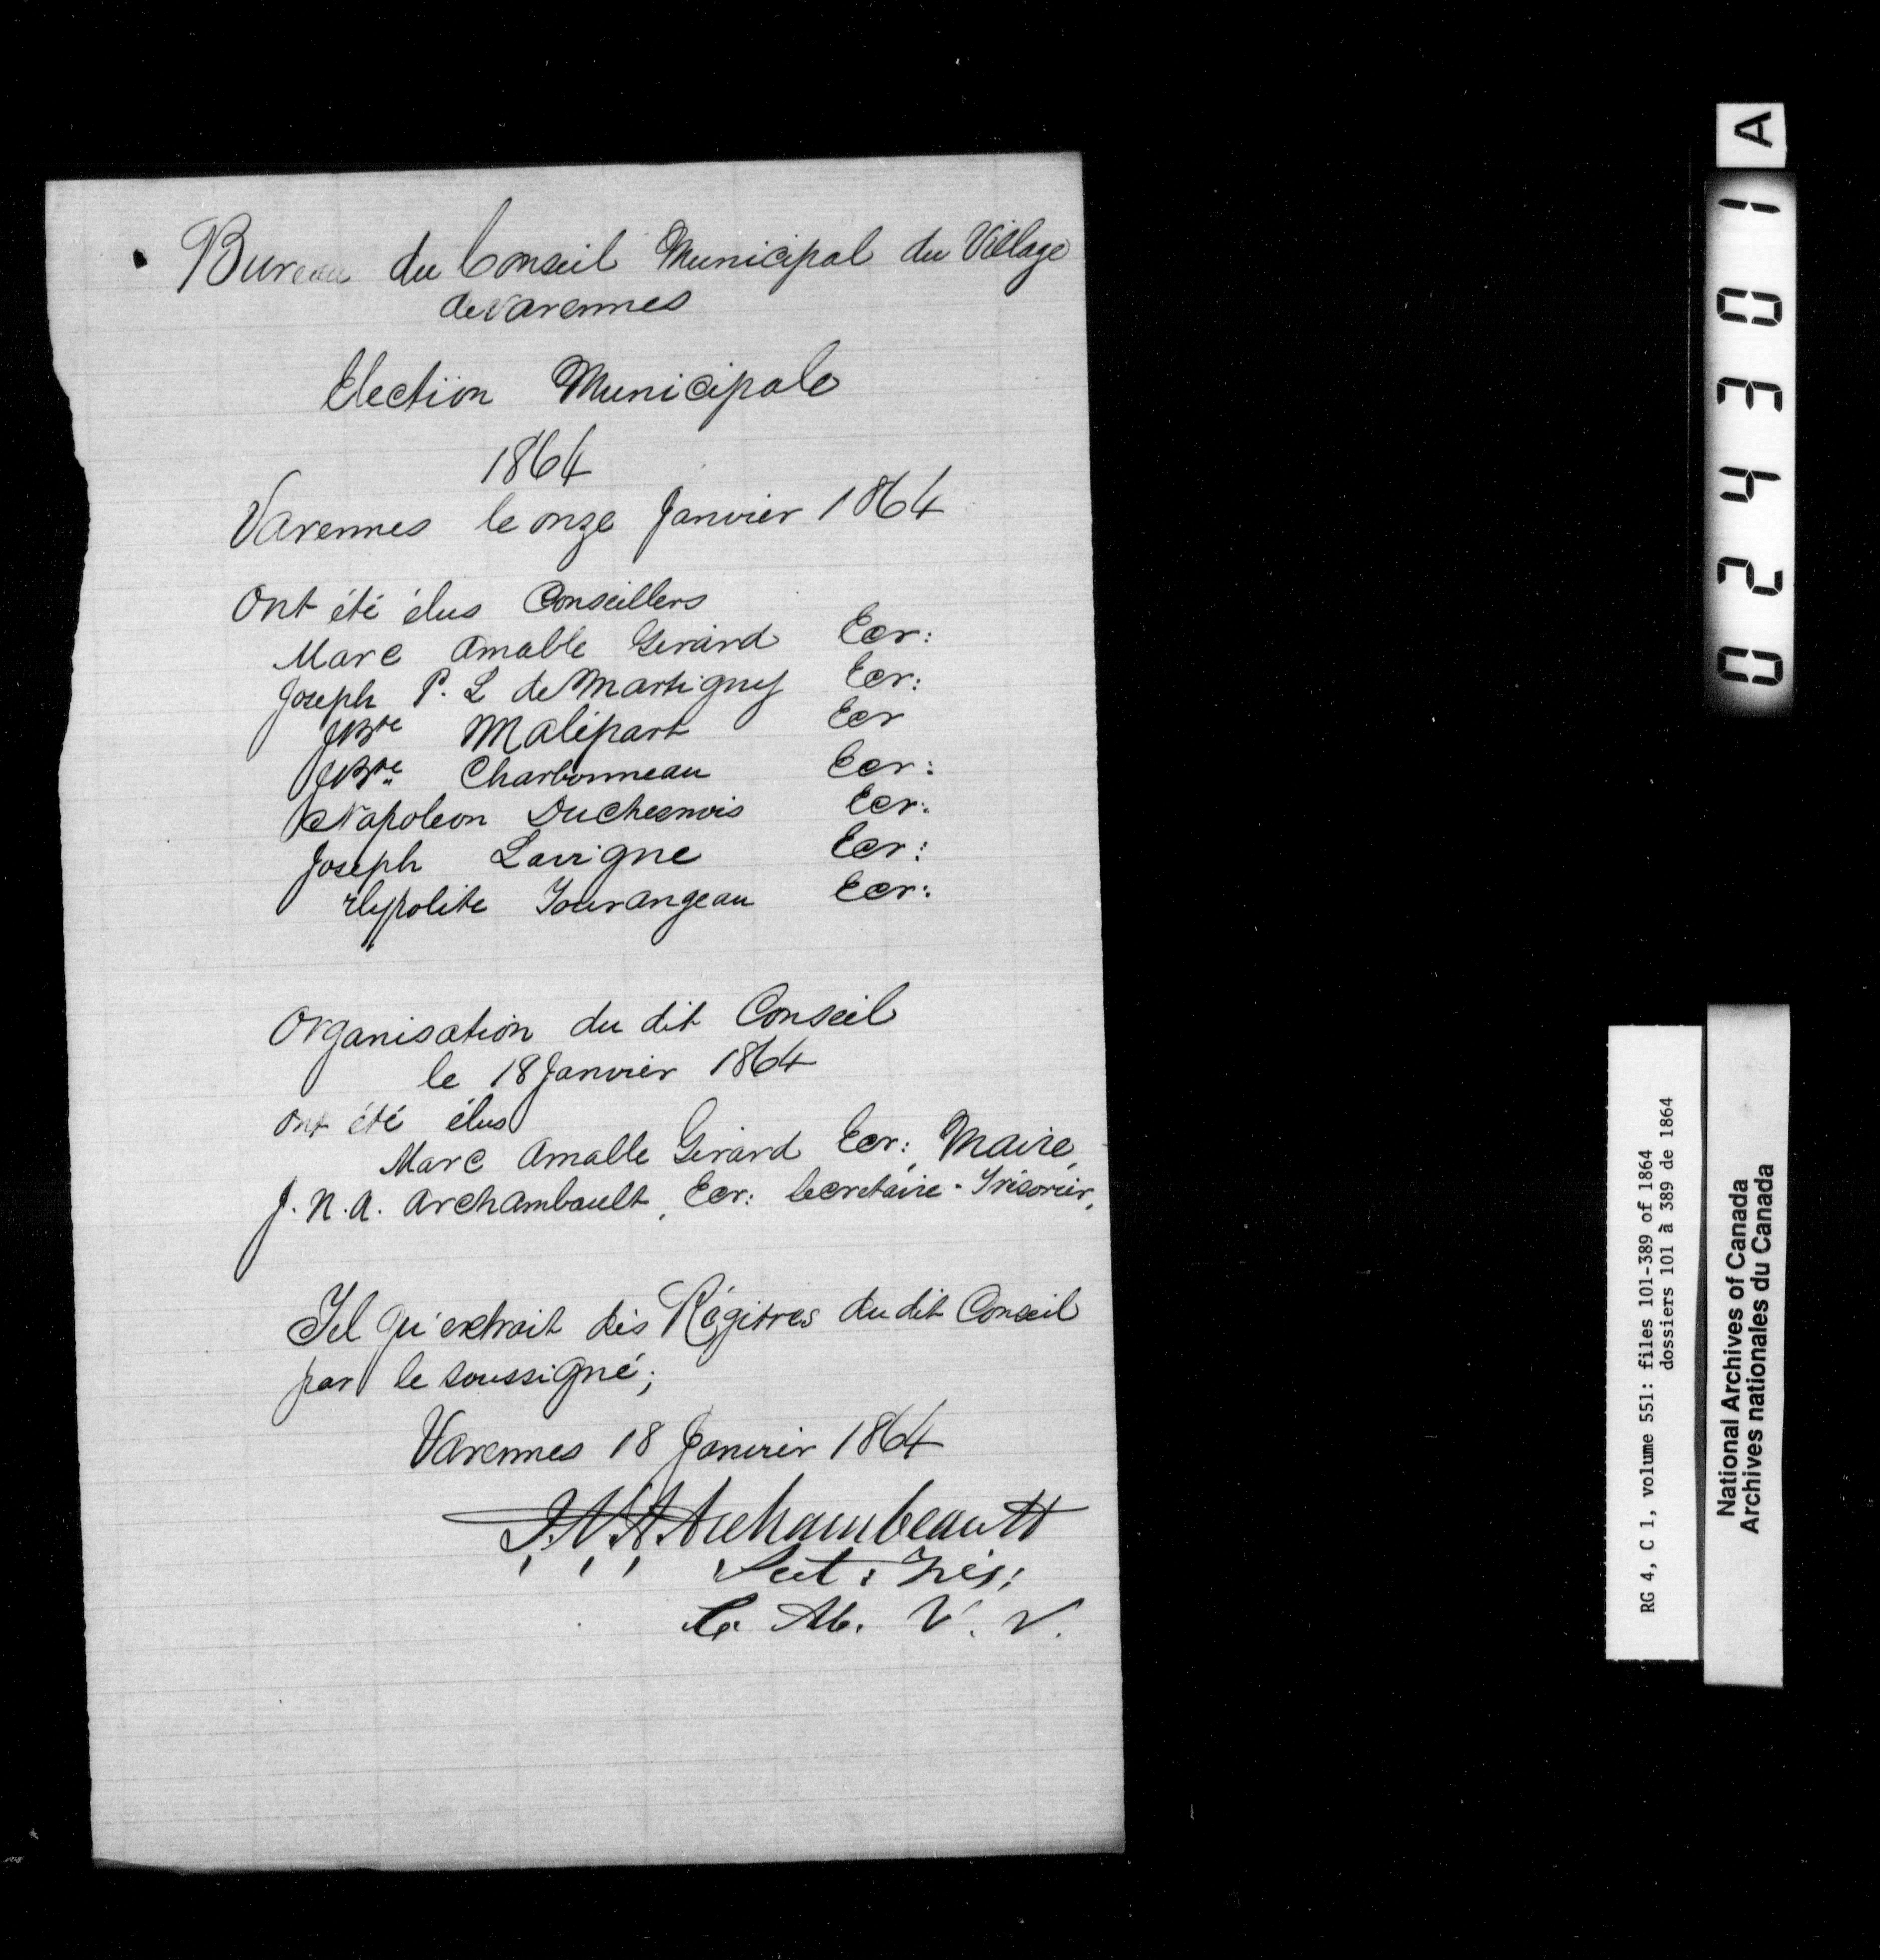 Bureau du Conseil Municipal du Village
de Varennes
Election Municipale
1864
Varennes le onze Janvier 1864
Ont été élus Conseillers
Marc Amable Girard Ecr:
Joseph P. L de Martigny Ecr:
JBte Malépart Ecr
JBte Charbonneau Ecr:
Napoleon Duchesnois Ecr:
Joseph Lavigne Ecr:
Hypolite Tourangeau Ecr:
Organisation du dit Conseil
le 18 Janvier 1864
ont été élus
Marc Amable Girard Ecr: Maire,
J. N. A. Archambault, Ecr: Secretaire-Trésorier,
Tel qu'extrait des Régitres du dit Conseil
par le soussigné;
Varennes 18 Janvier 1864
J. N. A. Archambeault
Sect: Trés:
C. M. V. V.
A
024301
RG 4, C 1, volume 551: files 101-389 of 1864
dossiers 101 à 389 de 1864
National Archives of Canada
Archives nationales du Canada